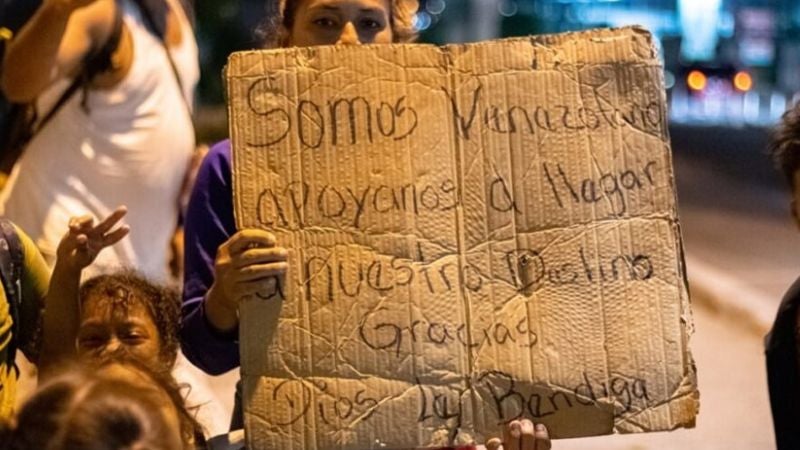 Somos Vanazolano
apoyanos a llagar
a nuestro Dastino
Gracias
Dios la Bendiga